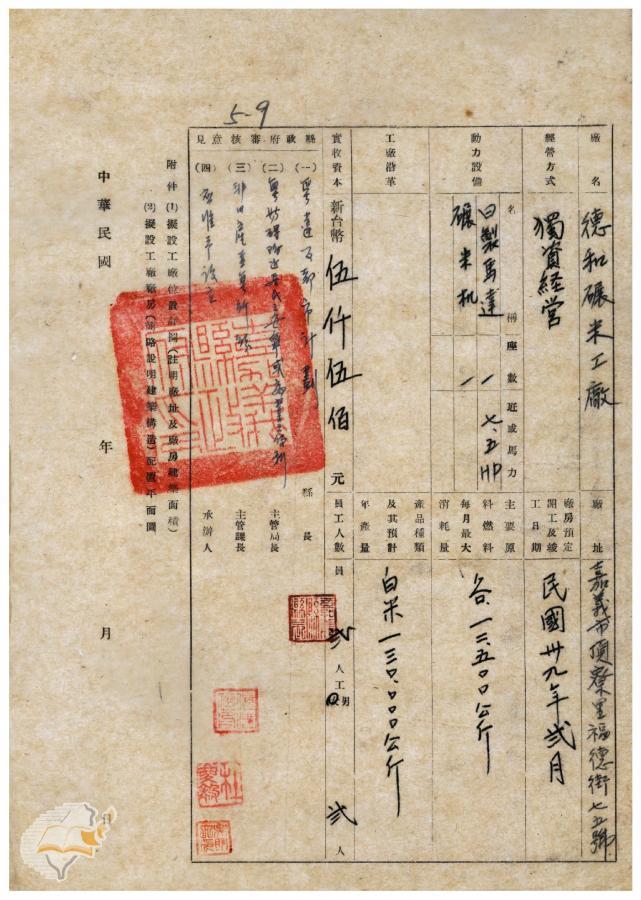 5-9
廠名 德和碾米工廠
廠址 嘉義市頂寮里福德街七五號
經營方式 獨資経営
廠房預定開工及竣工日期 民國卅九年弍月
動力設備
名稱 座數 匹或馬力
日製馬達 1 七.五HP
碾米机 1
主要原料燃料每月最大消耗量 谷.一三.五〇〇公斤
工廠沿革
產品種類及其預計年產量 白米一三〇.〇〇〇公斤
實收資本 新台幣 伍仟伍佰 元
員工人數 員 弍 人 工 男 弍 人
縣政府審核意見
(一)
(二)
(三)
(四) 准予設立
縣長
主管局長
主管課長
承辦人
附件 (1)擬設工廠位置計圖(註明廠址及廠房建築面積)
(2)擬設工廠廠房(簡略說明建築構造)配置平面圖
中華民國 年 月 日